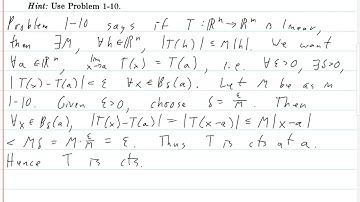 Hint: Use Problem 1-10.
Problem 1-10 says if T: ℝⁿ→ℝⁿ is linear,
then ∃M, ∀h∈ℝⁿ, |T(h)| ≤ M|h|. We want
∀a∈ℝⁿ, lim x→a T(x) = T(a), i.e. ∀ε>0, ∃δ>0,
|T(x)-T(a)|<ε ∀x∈B_δ(a). Let M be as in
1-10. Given ε>0, choose δ = ε/M. Then
∀x∈B_δ(a), |T(x)-T(a)| = |T(x-a)| ≤ M|x-a|
< Mδ = M·ε/M = ε. Thus T is cts at a.
Hence T is cts.